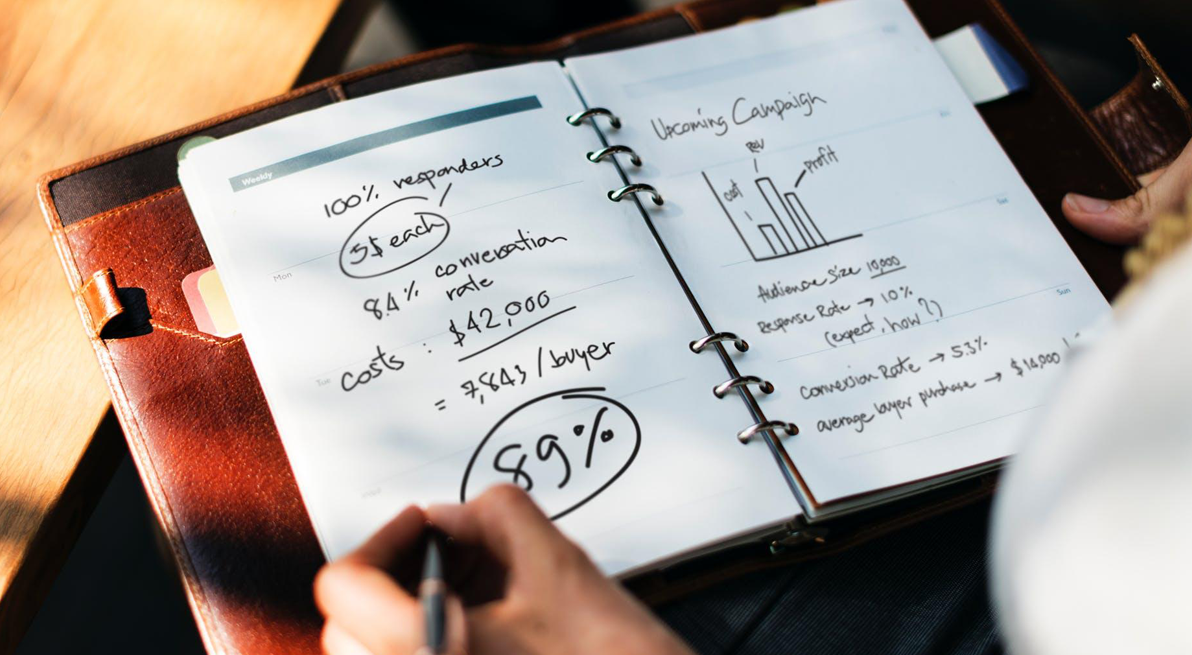 Weekly
100% responders
5$ each
Mon
8.4% conversation
rate
Tue
costs : $42,000
= 7,843/buyer
89%
Upcoming Campaign
REV
cost
Profit
Audience Size 10,000
Response Rate → 10%
(expect, how?)
Sun
Conversion Rate → 5.3%
average buyer purchase → $14,000